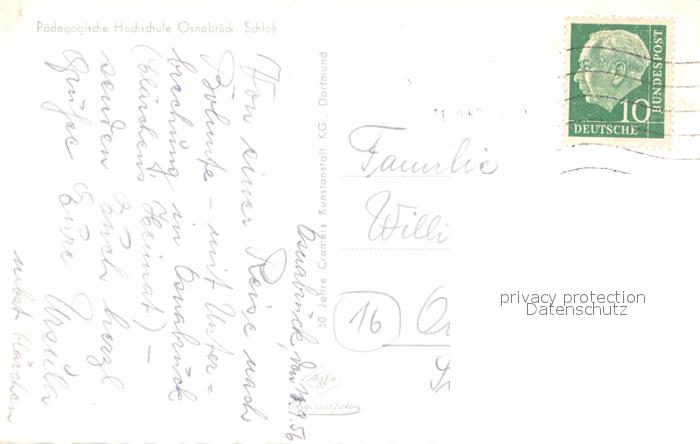 Pädagogische Hochschule Osnabrück. Schloß
Osnabrück, den
9.56
Von einer Reise nach
– mit Unter=
brechung in Osnabrück
(Klärchens Heimat) –
senden Euch herzl.
Grüße Eure Ursula
nebst Klärchen
50 Jahre Cramers Kunstanstalt KG., Dortmund
Agfa
Familie
Willi
16
DEUTSCHE
BUNDESPOST
10
privacy protection
Datenschutz